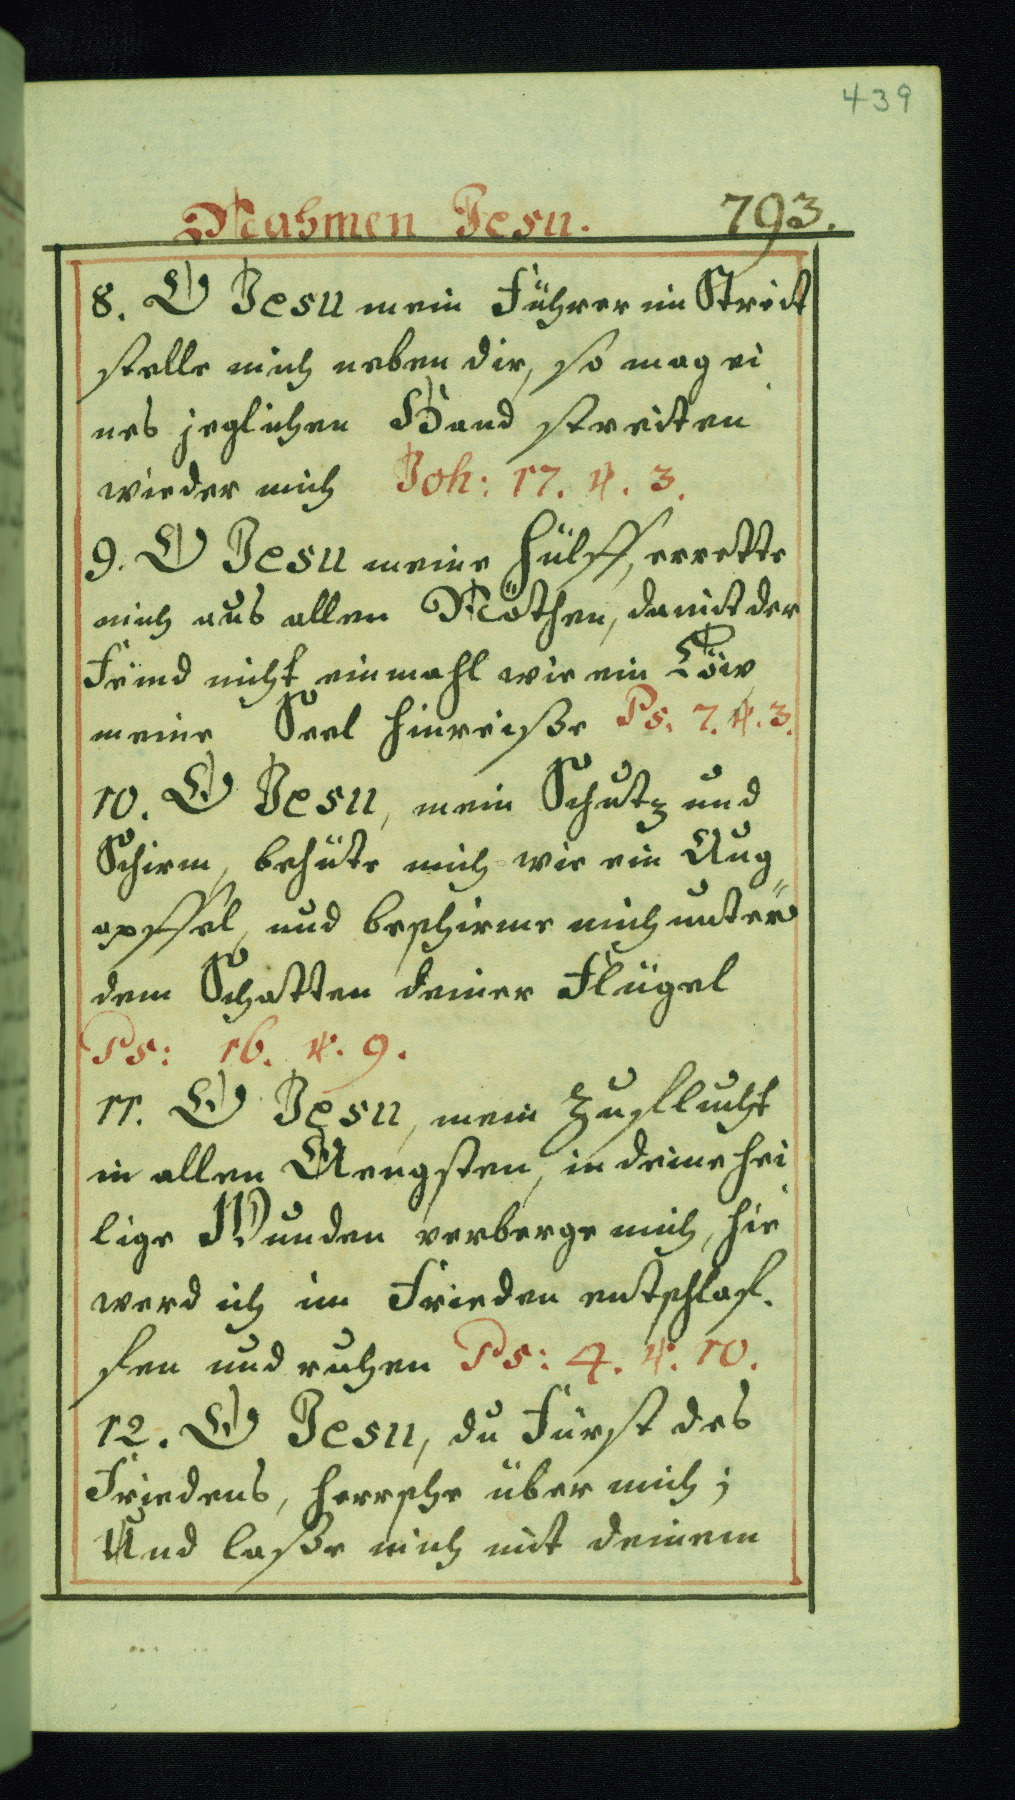 439
Nahmen Jesu. 793.
8. O Jesu mein Führer im Streit
stelle mich neben dir, so mag ei
nes jeglichen Hand streiten
wieder mich Joh: 17. ℣. 3.
9. O Jesu meine Hülff, errette
mich aus allen Nöthen, damit der
Feind nicht einmahl wie ein Löw
meine Seel hinreiße Ps: 7. ℣. 3.
10. O Jesu, mein Schutz und
Schirm, behüte mich wie ein Aug
apffel, und beschirme mich unter
dem Schatten deiner Flügel
Ps: 16. ℣. 9.
11. O Jesu, mein Zuflucht
in allen Aengsten, in deine hei
lige Wunden verberge mich, hie
werd ich im Frieden entschlaf-
fen und ruhen Ps: 4. ℣. 10.
12. O Jesu, du Fürst des
Friedens, herrsche über mich;
Und laße mich mit deinem